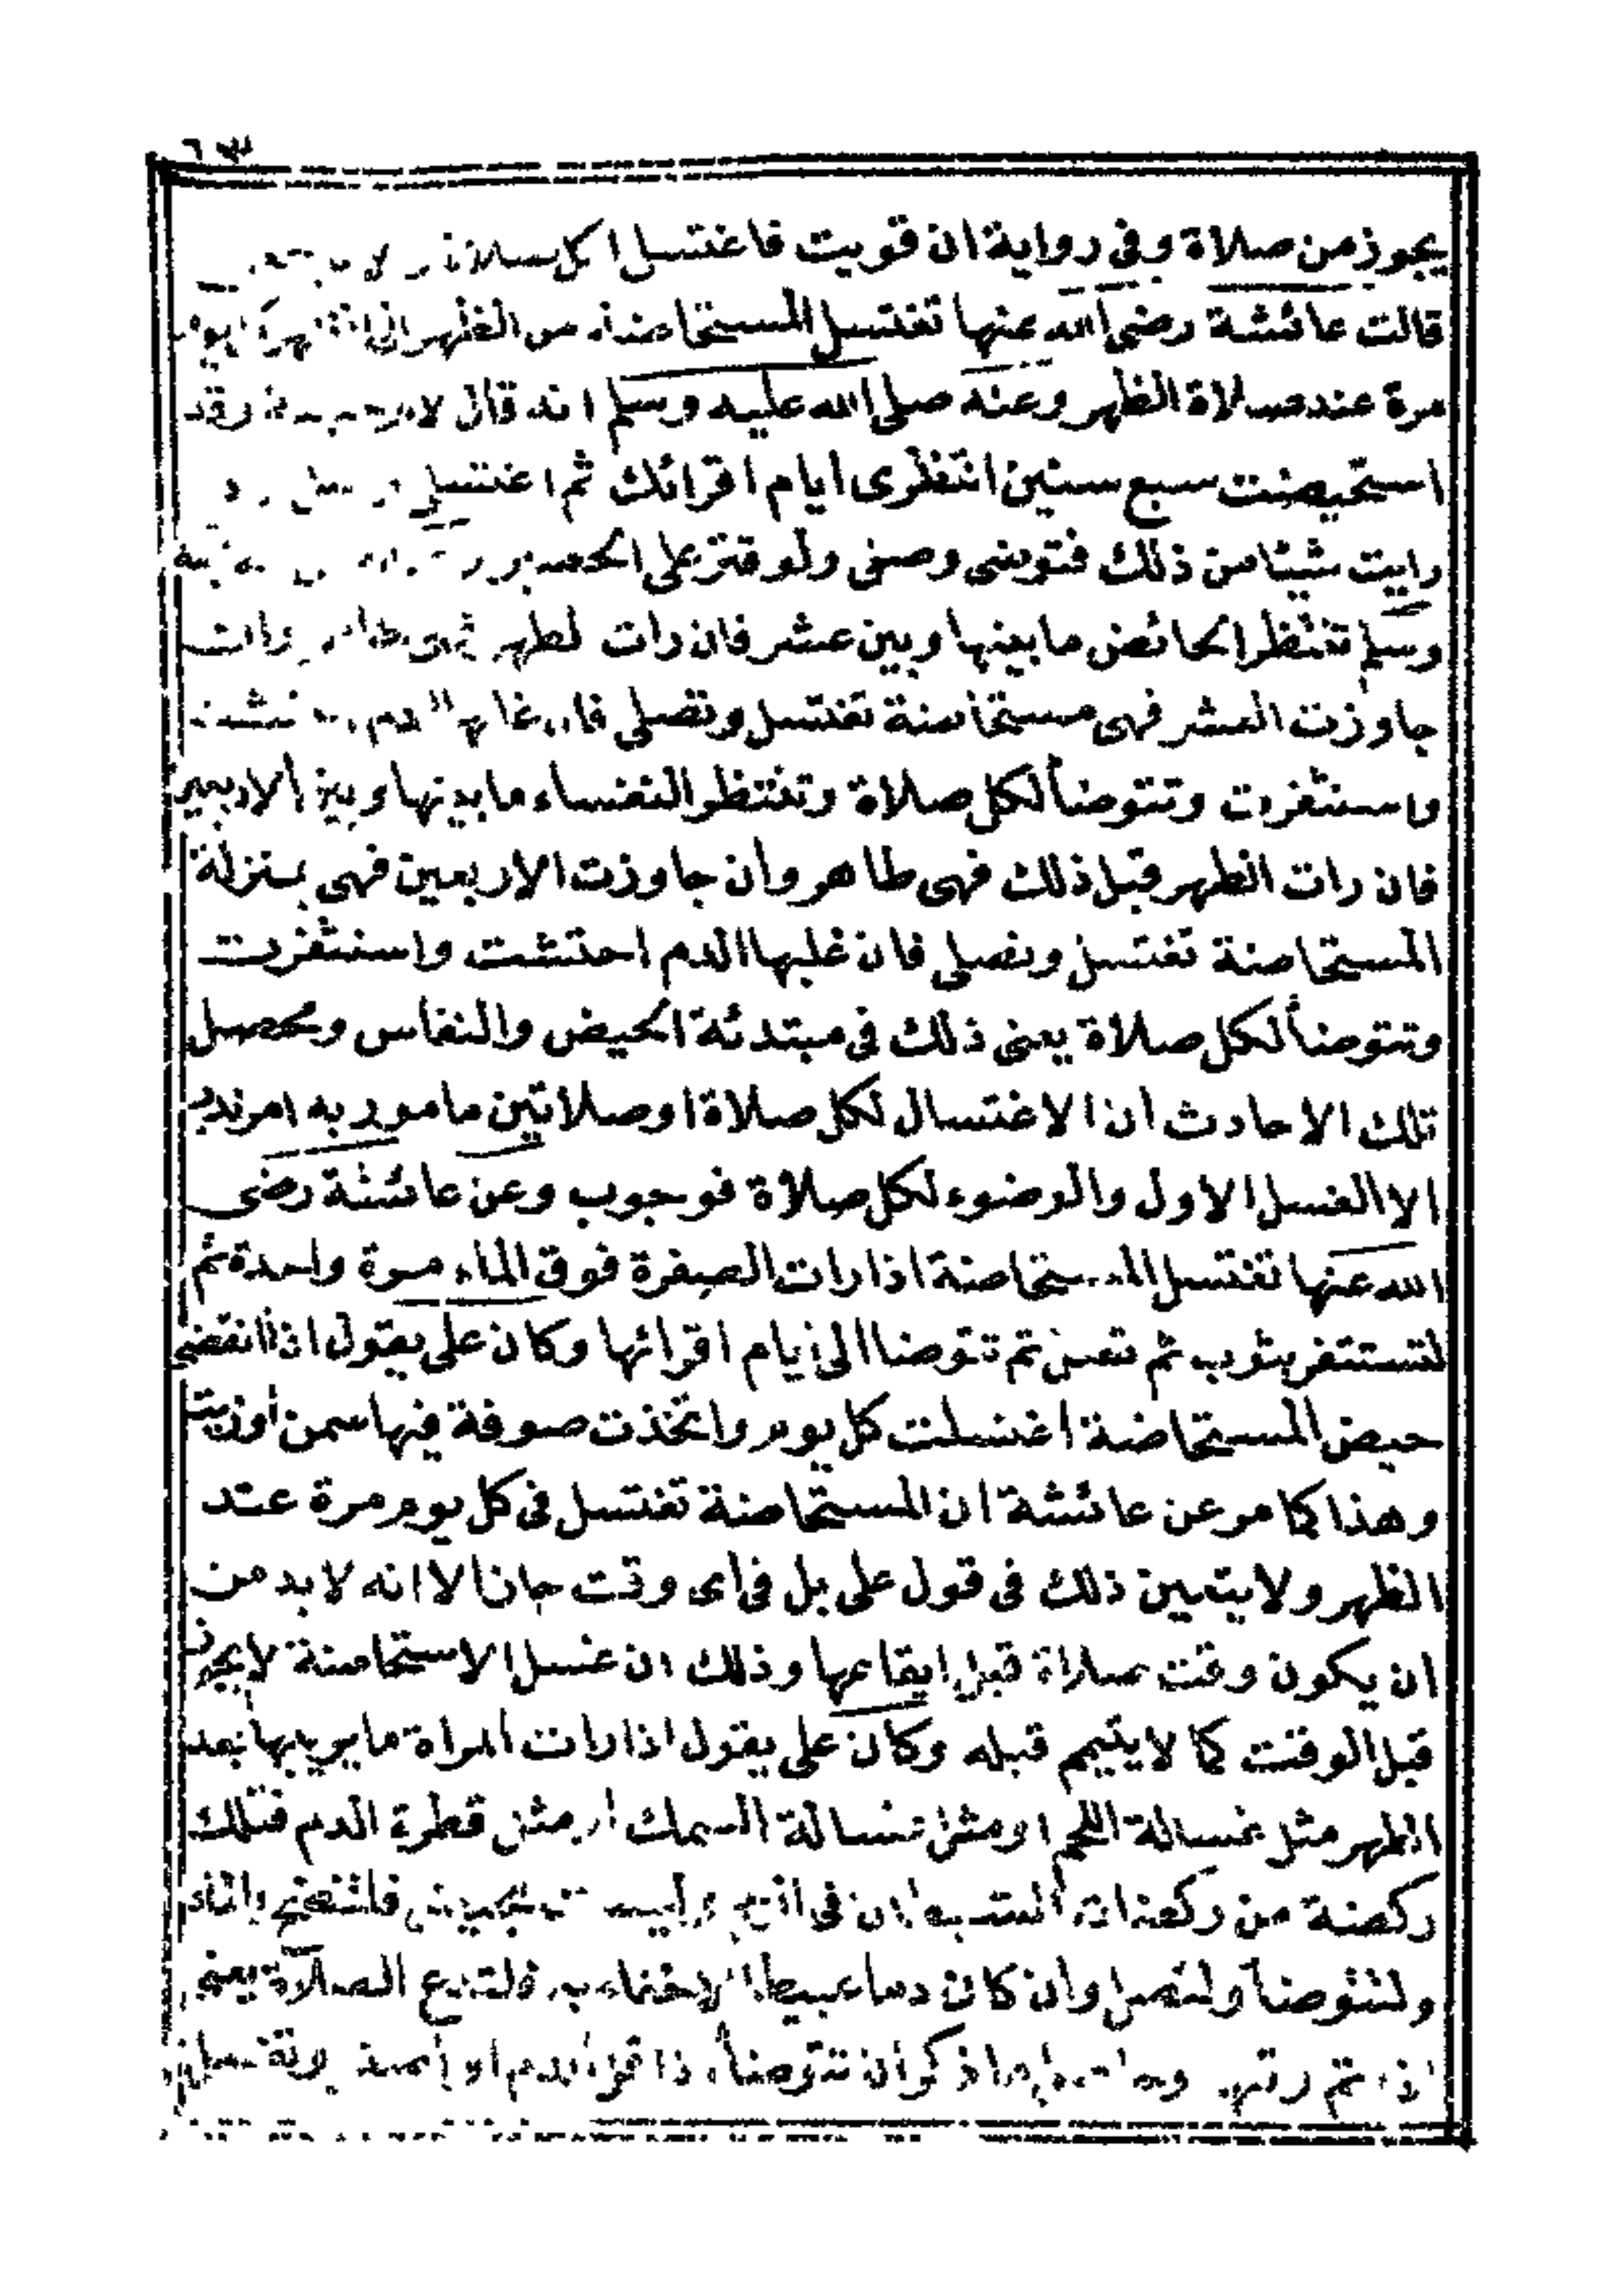 يجوز من صلاة وفى رواية ان قويت فاغتسل لكل صلاة
قالت عائشة رضى الله عنها تغتسل المستحاضة من الظهر الى الظهر كل يوم
مرة عند صلاة الظهر وعنه صلى الله عليه وسلم انه قال وقد
استحيضت سبع سنين انتظرى ايام اقرائك ثم اغتسلى
رايت شيئا من ذلك فتوضى وصلى ولو قتر على الحصير
وسلم تنتظر الحائض ما بينها وبين عشر فان رات الطهر
جاوزت العشر فهى مستحاضة تغتسل وتصلى فان غلبها الدم احتشت
واستثفرت وتتوضأ لكل صلاة وتنتظر النفساء ما بينها وبين الاربعين
فان رات الطهر قبل ذلك فهى طاهر وان جاوزت الاربعين فهى بمنزلة
المستحاضة تغتسل وتصلى فان غلبها الدم احتشت واستثفرت
وتتوضأ لكل صلاة يعنى ذلك فى مبتدئة الحيض والنفاس ومحصل
تلك الاحادث ان الاغتسال لكل صلاة او صلاتين مامور به امر ندب
الا الغسل الاول والوضوء لكل صلاة فوجوب وعن عائشة رضى
الله عنها تغتسل المستحاضة اذا رات الصفرة فوق الماء مرة واحدة ثم
لتستثفر بثوب ثم تتوضا الى ايام اقرائها وكان على يقول اذا انقضى
حيض المستحاضة اغتسلت كل يوم واتخذت صوفة فيها سمن او زيت
وهذا كما مر عن عائشة ان المستحاضة تغتسل فى كل يوم مرة عند
الظهر ولا يتعين ذلك فى قول على بل فى اى وقت جاز الا انه لا بد من
ان يكون وقت صلاة قبل ايقاعها وذلك ان غسل الاستحاضة لا يجوز
قبل الوقت كما لا يتيمم قبله وكان على يقول اذا رات المراة ما يريبها بعد
الطهر مثل غسالة اللحم او مثل غسالة السمك او مثل قطرة الدم فتلك
ركضة من ركضات الشيطان فى وليست فلتنضح بالماء
ولتتوضأ ولتصل وان كان دما عبيطا لا خفاء به فلتدع الصلاة يعنى
ذكر ان تتوضأ